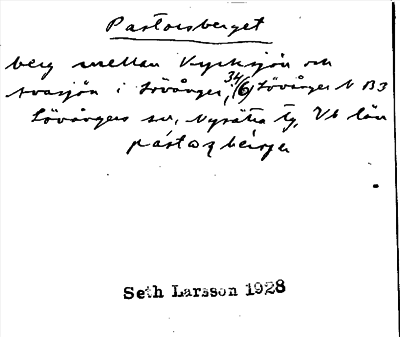 Pastorsberget
berg mellan Kyrksjön och
Avasjön i Lövånger, 34 (6) Lövånger N B3
Lövångers sn, Nysätra tg, Vb län
Seth Larsson 1928